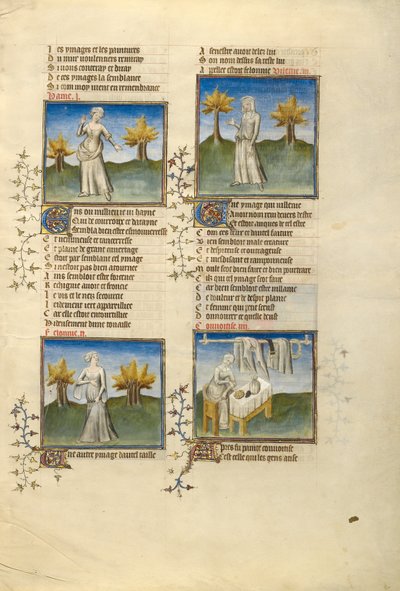 Les ymages et les paintures
Du mur voulentiers remiray
Si vous conteray et diray
De ces ymages la semblance
Si com moy vient en remembrance
Hayne. i.
Ens ou milieu vi hayne
Qui de courroux et datayne
Sembla bien estre
Et
Et plaine de grant cuvertage
Estoit par semblant cel ymage
Si nestoit pas bien atournee
Ains sembloit estre forcenee
Rechignie avoit et froncie
Le vis et le nez secourcie
Et
Car elle estoit entortillee
Hideusement dune touaille
Felonnie. ii.
Une autre ymage dautel taille
A senestre avoit delez lui
Son nom dessus sa teste lui
Apellee estoit felonnie Vilenie. iii.
Une ymage qui vilenie
Avoit nom revi devers destre
Qui estoit auques de cel estre
Com ces deux et dautel faiture
Bien sembloit male creature
Et despiteuse et orguilleuse
Et mesdisant et ramponneuse
Moult sceut bien faire et bien pourtraire
Cil qui cel ymage sceut faire
Car bien sembloit estre villaine
De douleur et de despit plaine
Et femme qui petit sceust
Donnourer ce quelle deust
Couvoitise. iiii.
Apres fu painte couvoitise
Cest celle qui les gens atise